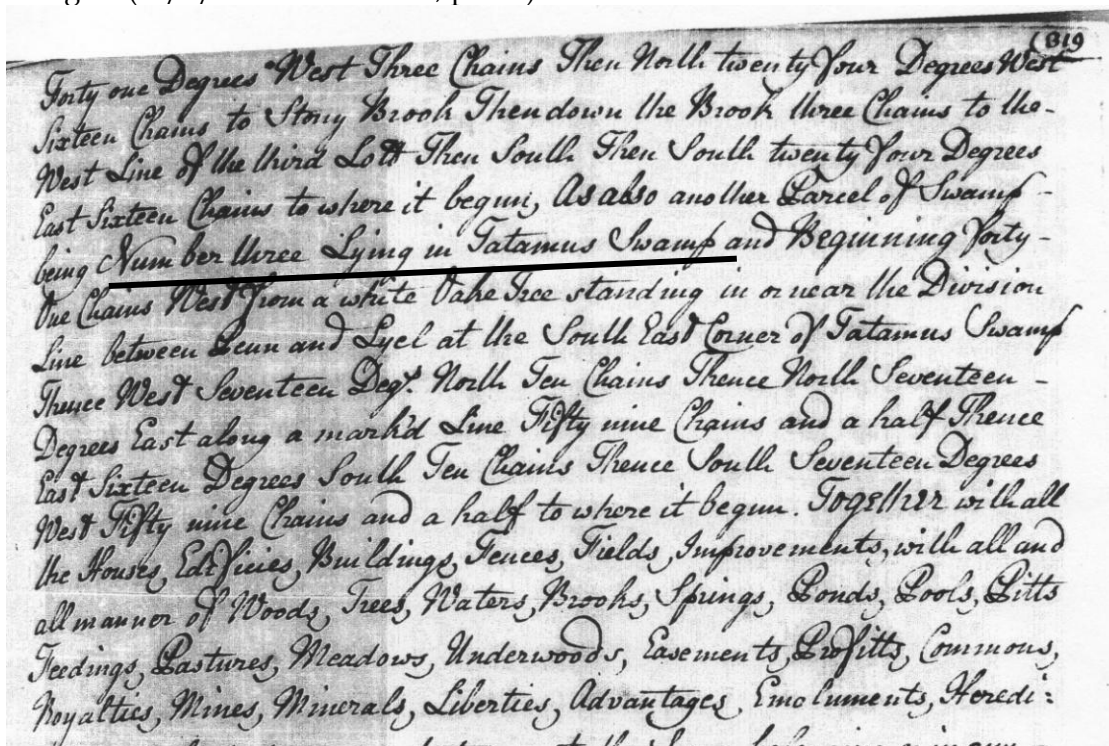 (319
Forty one Degrees West Three Chains Then North twenty four Degrees West
Sixteen Chains to Stony Brook Then down the Brook three Chains to the-
West Line of the third Lott Then South Then South twenty four Degrees
East Sixteen Chains to where it begun, As also another Parcel of Swamp-
being Number three Lying in Tatamus Swamp and Beginning forty-
One Chains West from a white Oake Tree standing in or near the Division
Line between Penn and Lyel at the South East Corner of Tatamus Swamp
Thence West Seventeen Degs. North Ten Chains Thence North Seventeen-
Degrees East along a mark'd Line Fifty nine Chains and a half Thence
East Sixteen Degrees South Ten Chains Thence South Seventeen Degrees
West Fifty nine Chains and a half to where it begun. Together with all
the Houses, Edificies, Buildings, Fences, Fields, Improvements, with all and
all manner of Woods, Trees, Waters, Brooks, Springs, Ponds, Pools, Pitts
Feedings, Pastures, Meadows, Underwoods, Easements, Profitts, Commons,
Royalties, Mines, Minerals, Liberties, Advantages, Emoluments, Heredi: